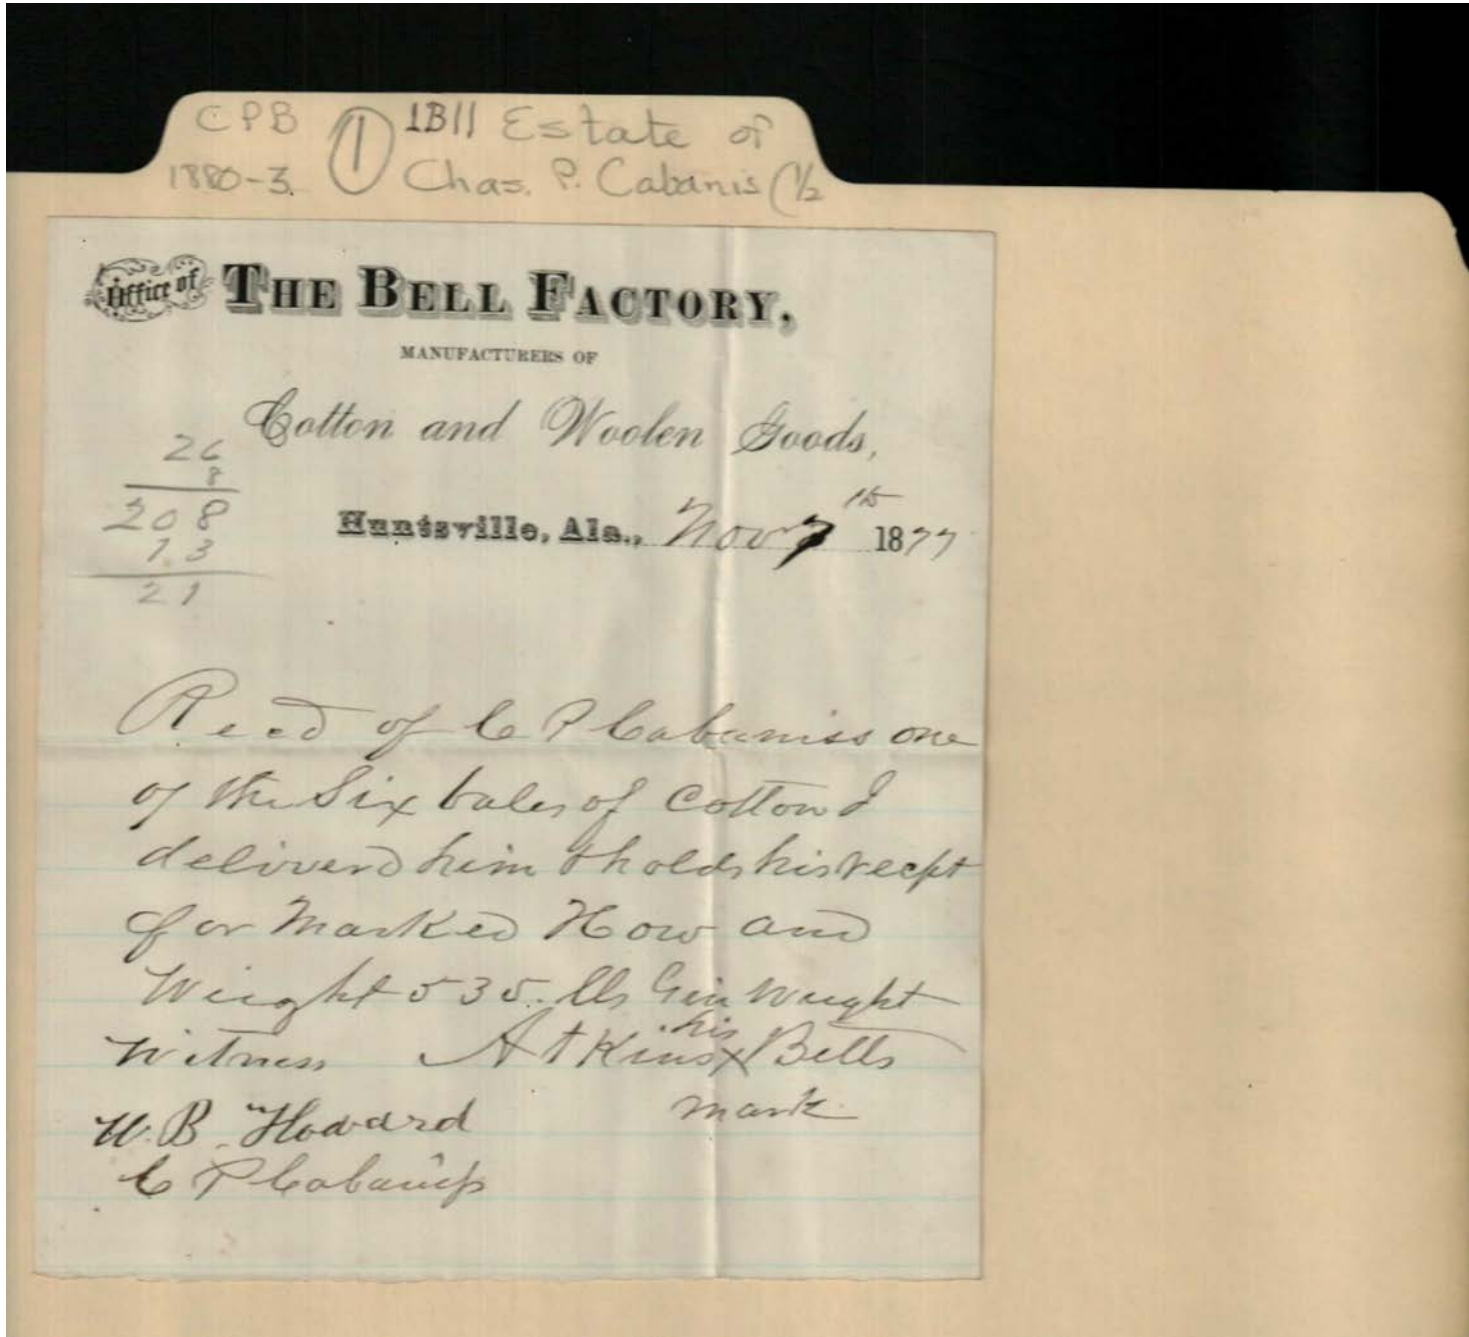 CPB ① 1B11 Estate of
1880-3. Chas. P. Cabanis (1/2
Office of THE BELL FACTORY,
MANUFACTURERS OF
Cotton and Woolen Goods,
26
8
208
13
21
Huntsville, Ala., Nov 7th 1877
Recd of C P Cabaniss one
of the Six bales of Cotton I
deliverd him & holds his recpt
for Marked How and
Weight 535 lbs Gin Weight
Witness Atkins his x mark Bells
W. B. Howard
C P Cabaniss